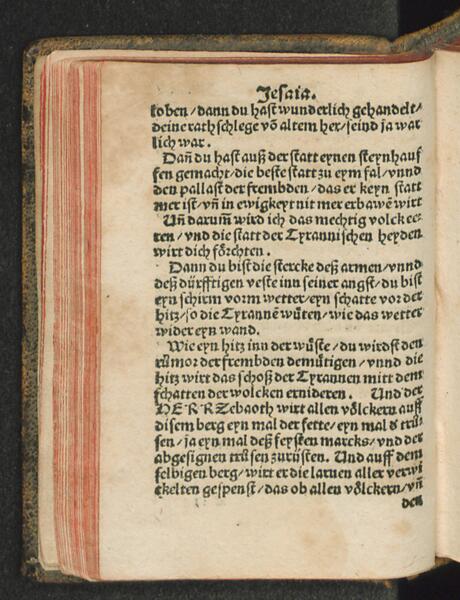 Jesaia.
loben / dann du hast wunderlich gehandelt /
deine rathschlege võ altem her / seind ja war
lich war.
Dañ du hast auß der statt eynen steynhauf
fen gemacht / die beste statt zu eym fal / vnnd
den pallast der frembden / das er keyn statt
mer ist / vñ in ewigkeyt nit mer erbawẽ wirt
Uñ darum̃ wird ich das mechtig volck ee-
ren / vnd die statt der Tyrannischen heyden
wirt dich fo̊rchten.
Dann du bist die stercke deß armen / vnnd
deß dürfftigen veste inn seiner angst / du bist
eyn schirm vorm wetter / eyn schatte vor der
hitz / so die Tyrannẽ wüten / wie das wetter
wider eyn wand.
Wie eyn hitz inn der wüste / du wirdst den
rümor der frembden demütigen / vnnd die
hitz wirt das schoß der Tyrannen mitt dem
schatten der wolcken ernideren. Und der
HERR Zebaoth wirt allen völckern auff
disem berg eyn mal der fette / eyn mal d' trü-
sen / ja eyn mal deß feysten marcks / vnd der
abgesignen trüsen zurüsten. Und auff dem
selbigen berg / wirt er die laruen aller verwi
ckelten gespenst / das ob allen völckern / vñ
den